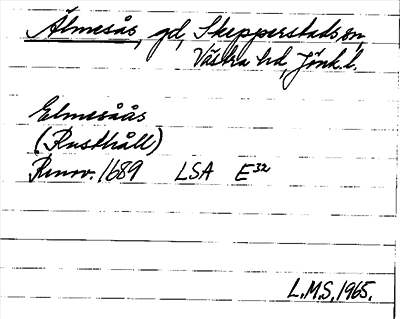 Älmesås, gd, Skepperstads sn,
Västra hd, Jönk.l.
Elmesåås
(Rusthåll)
Renov. 1689 LSA E32
L.M.S. 1965.